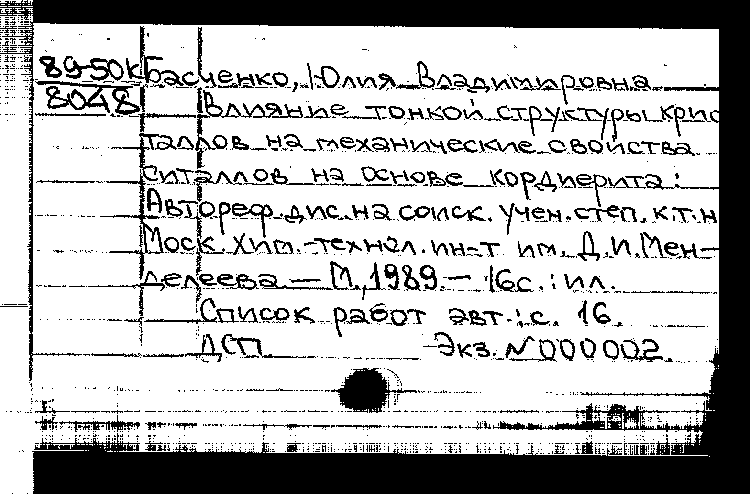 89-50к Басченко, Юлия Владимировна
8048 Влияние тонкой структуры крис
таллов на механические свойства
ситаллов на основе кордиерита:
Автореф. дис. на соиск. учен. степ. к.т.н
Моск. хим.-технол. ин-т им. Д.И. Мен-
делеева — М., 1989 — 16с.: ил.
Список работ авт.: с. 16.
ДСП. Экз. N000002.